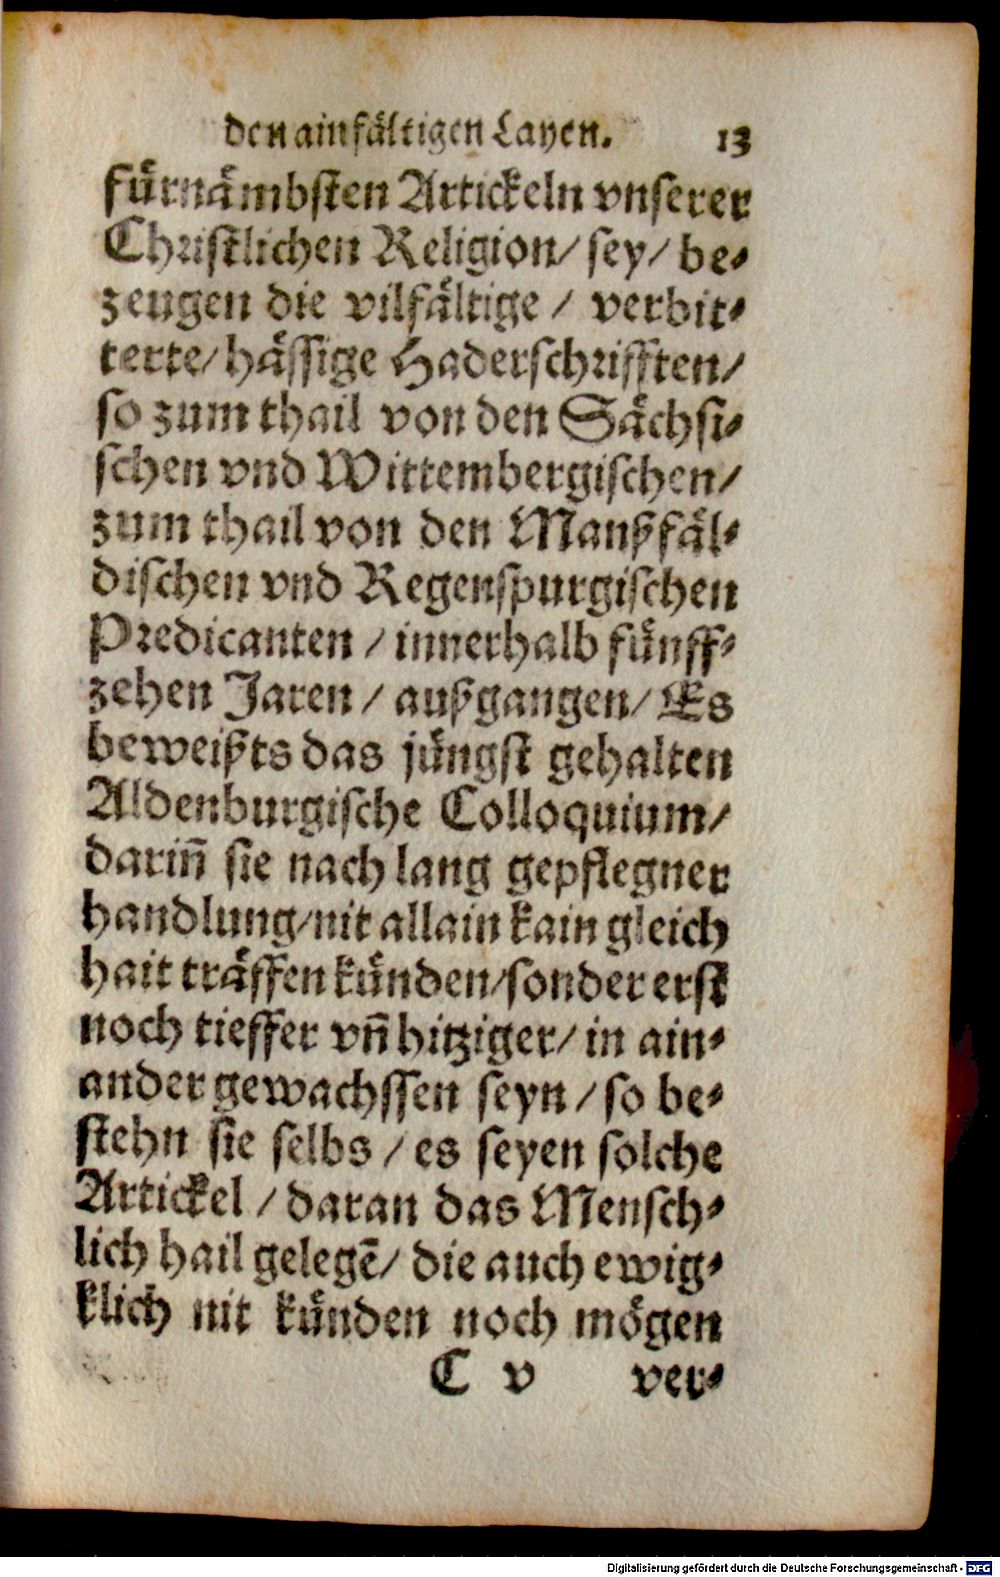 den ainfältigen Layen. 13
fürnämbsten Artickeln vnserer
Christlichen Religion/ sey/ be-
zeugen die vilfältige / verbit-
terte/ hässige Haderschrifften/
so zum thail von den Sächsi-
schen vnd Wittembergischen/
zum thail von den Manßfäl-
dischen vnd Regenspurgischen
Predicanten / innerhalb fünff-
zehen Jaren / außgangen/ Es
beweißts das jüngst gehalten
Aldenburgische Colloquium/
dariñ sie nach lang gepflegner
handlung/ nit allain kain gleich
hait träffen künden/ sonder erst
noch tieffer vñ hitziger/ in ain-
ander gewachssen seyn / so be-
stehn sie selbs / es seyen solche
Artickel / daran das Mensch-
lich hail gelegē/ die auch ewig-
klich nit künden noch mögen
C v ver-
Digitalisierung gefördert durch die Deutsche Forschungsgemeinschaft - DFG